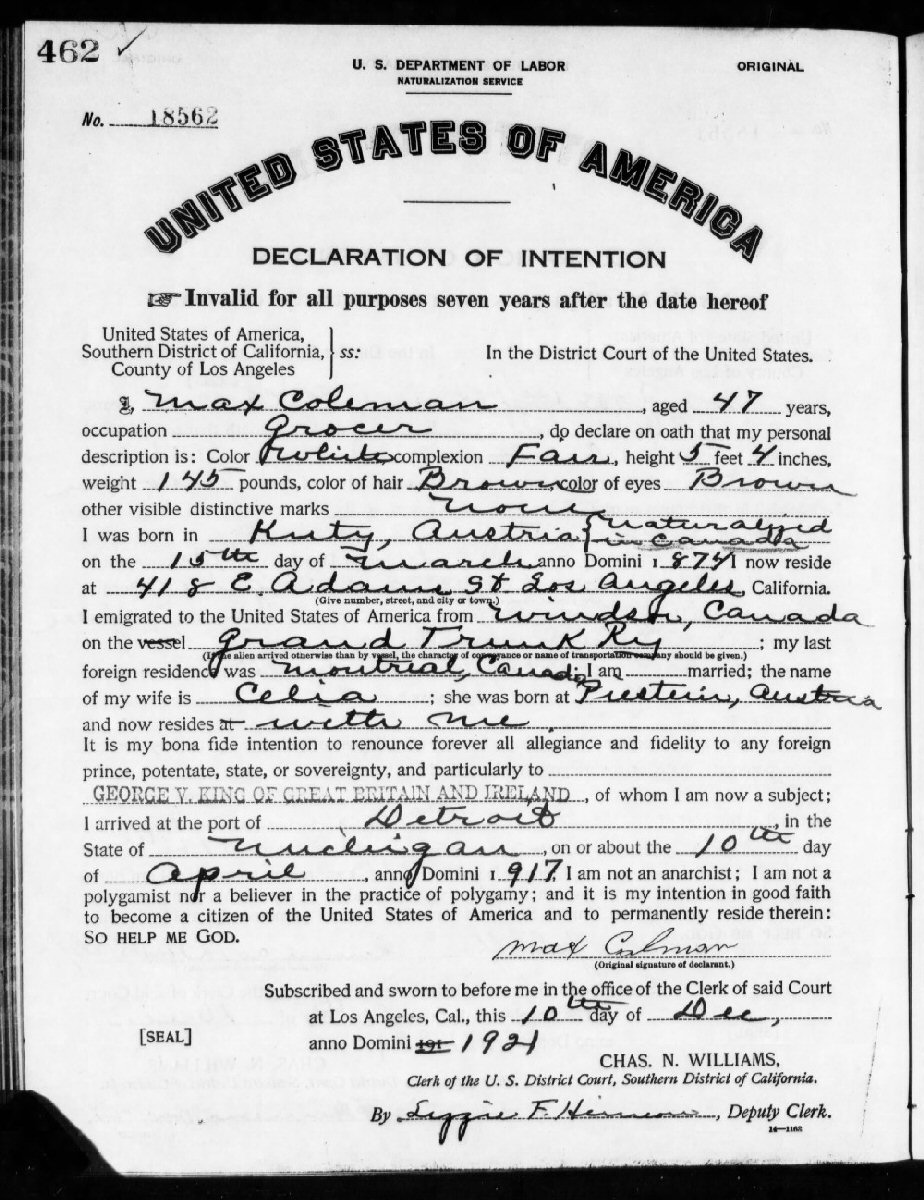 462 ✓
U. S. DEPARTMENT OF LABOR
NATURALIZATION SERVICE
ORIGINAL
No. 18562
UNITED STATES OF AMERICA
DECLARATION OF INTENTION
☞Invalid for all purposes seven years after the date hereof
United States of America,
Southern District of California, } ss: In the District Court of the United States.
County of Los Angeles
I, Max Coleman, aged 47 years,
occupation Grocer, do declare on oath that my personal
description is: Color White complexion Fair, height 5 feet 4 inches,
weight 145 pounds, color of hair Brown color of eyes Brown
other visible distinctive marks none
I was born in Kuty, Austria { naturalized in Canada
on the 15th day of March anno Domini 1874 I now reside
at 418 E. Adams St Los Angeles, California.
(Give number, street, and city or town.)
I emigrated to the United States of America from Windsor, Canada
on the vessel Grand Trunk Ry; my last
(If the alien arrived otherwise than by vessel, the character of conveyance or name of transportation company should be given.)
foreign residence was Montreal, Canada; I am married; the name
of my wife is Celia; she was born at Austria
and now resides at with me
It is my bona fide intention to renounce forever all allegiance and fidelity to any foreign
prince, potentate, state, or sovereignty, and particularly to
GEORGE V. KING OF GREAT BRITAIN AND IRELAND, of whom I am now a subject;
I arrived at the port of Detroit, in the
State of Michigan, on or about the 10th day
of April, anno Domini 1917. I am not an anarchist; I am not a
polygamist nor a believer in the practice of polygamy; and it is my intention in good faith
to become a citizen of the United States of America and to permanently reside therein:
SO HELP ME GOD.
Max Colman
(Original signature of declarant.)
Subscribed and sworn to before me in the office of the Clerk of said Court
at Los Angeles, Cal., this 10th day of Dec,
[SEAL]
anno Domini 191 1921
CHAS. N. WILLIAMS,
Clerk of the U. S. District Court, Southern District of California.
By Lizzie F. , Deputy Clerk.